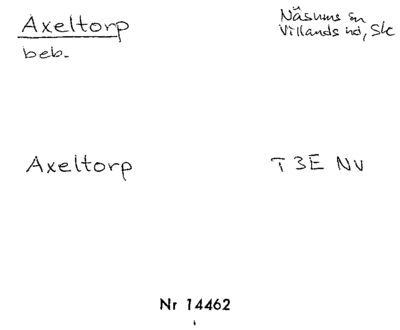 Axeltorp
Näsums sn
Villands hd, Sk
beb.
Axeltorp
T 3E NV
Nr 14462